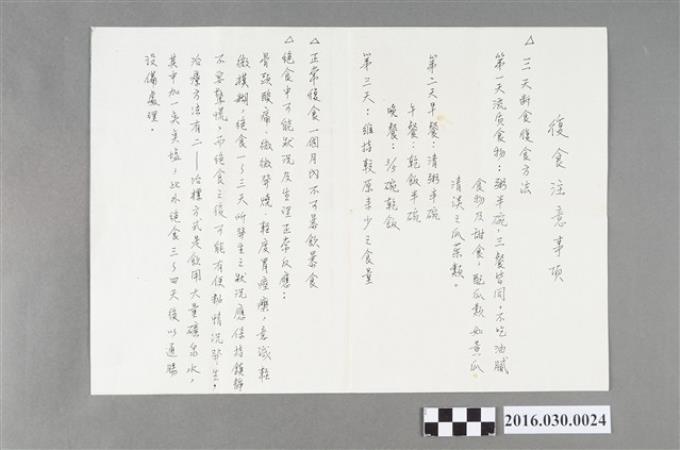 復食注意事項
△ 三天斷食復食方法
第一天流质食物：粥半碗，三餐皆同，不吃油膩
食物及甜食，配瓜類如黃瓜。
清淡之瓜菜類。
第二天早餐：清粥半碗
午餐：乾飯半碗
晚餐：2/3碗乾飯
第三天：維持較原來少之食量
△ 正常復食一個月內不可暴飲暴食
△ 絕食中可能狀況及生理正常反應：
骨頭酸痛．微微發燒．輕度胃痙攣，意識輕
微模糊，絕食一～三天所發生之狀況應保持鎮靜
不要驚慌，而絕食之後可能有便秘情況發生，
治療方法有二──治標方式是飲用大量礦泉水，
其中加一匙美塩，此水絕食三～四天後以通腸
設備處理。
2016.030.0024